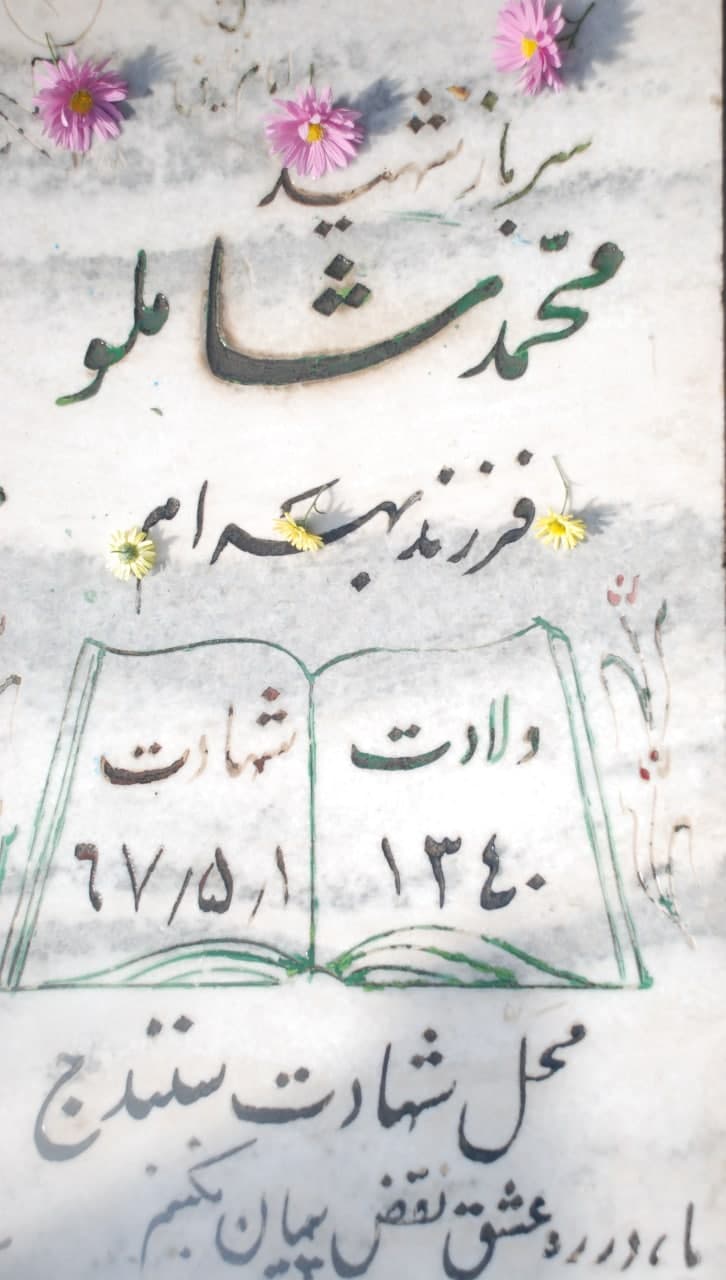 سرباز شهید
محمّد شاملو
فرزند بهرام
ولادت
۱۳۴۰
شهادت
۶۷/۵/۱
محل شهادت سنندج
ما در ره عشق نقض پیمان نکنیم